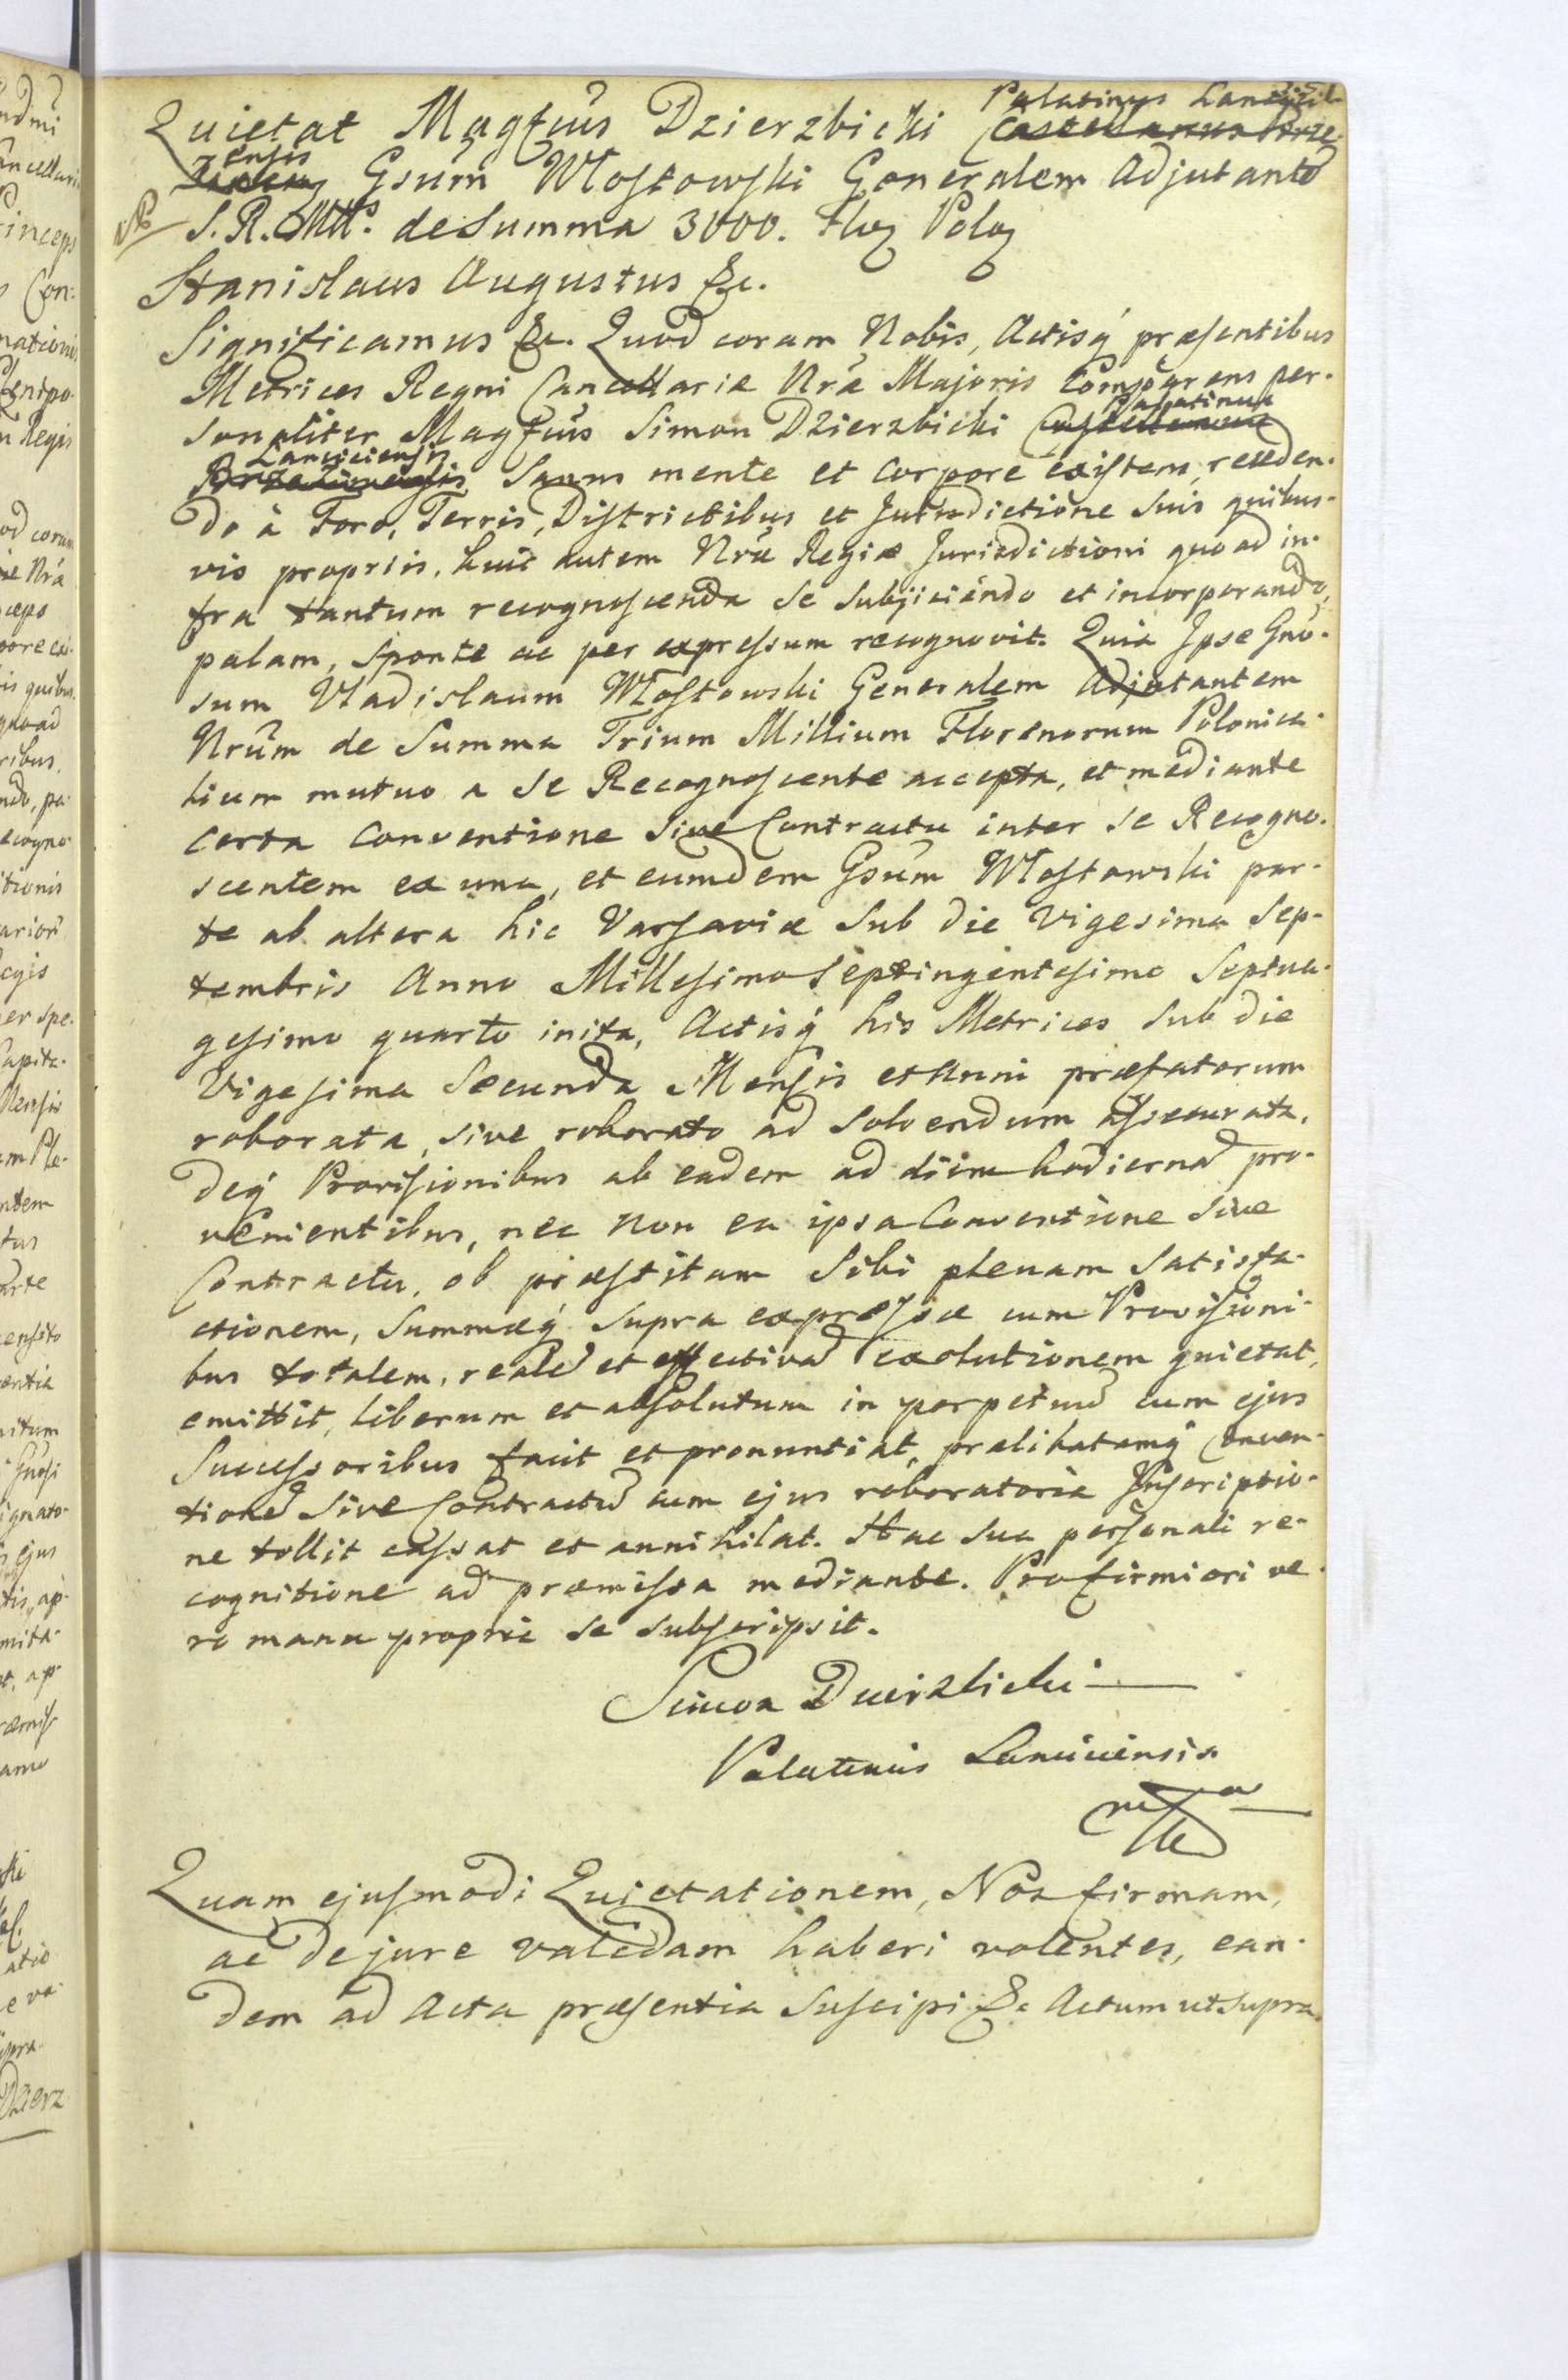 Quietat Magfcus Dzierzbicki Palatinus Lancici Castellanus Brze
ensis zinens Gsum Włostowski Generalem Adjutante
NB S. R. Mtts. de Summa 3000. Flor Polo
Stanislaus Augustus &c.
Significamus &c. Quod coram Nobis, Actisq præsentibus
Metrices Regni Cancellariæ Nræ Majoris Comparens per-
sonaliter Magfcus Simon Dzierzbicki Castellanus Palatinus
Brzezinensis Lanciciensis Sanus mente et Corpore existens, receden-
do à Foro, Terris, Districtibus et Jurisdictione suis quibus-
vis propriis, huic autem Nræ Regiæ Jurisdictioni quoad in-
fra tantum recognoscenda se subjiciendo et incorporando,
palam, sponte ac per expressum recognovit. Quia Ipse Gno-
sum Vladislaum Włostowski Generalem Adjutantem
Nrum de Summa Trium Millium Florenorum Polonica-
lium mutuo a se Recognoscente accepta, et mediante
certa Conventione Sive Contractu inter se Recogno-
scentem ex una, et eumdem Gsum Włostowski par-
te ab altera hic Varsaviæ sub die Vigesima Sep-
tembris Anno Millesimo Septingentesimo Septua-
gesimo quarto inita, Actisq his Metrices sub die
Vigesima Secunda Mensis et Anni præfatorum
roborata, sive roborato ad solvendum assecurata,
deq Provisionibus ab eadem ad diem hodierna pro-
venientibus, nec non ex ipsa Conventione sive
Contractu, ob præstitam sibi plenam satisfa-
ctionem, Summæq supra expressæ cum Provisioni-
bus totalem, reale et effectiva exolutionem quietat,
emittit, liberum et absolutum in perpetuu cum ejus
Successoribus facit et pronuntiat, prælibatamq Conven-
tione sive Contractu cum ejus roboratoria Inscriptio-
ne tollit cassat et annihilat. Hac sua personali re-
cognitione ad præmissa mediante. Pro firmiori ve-
ro manu propria se subscripsit.
Simon Dzierzbicki
Palatinus Lanciciensis
mpp
Quam ejusmodi Quietationem, Nos firmam,
ac de jure validam haberi volentes, ean-
dem ad Acta præsentia suscipi &c Actum ut supra